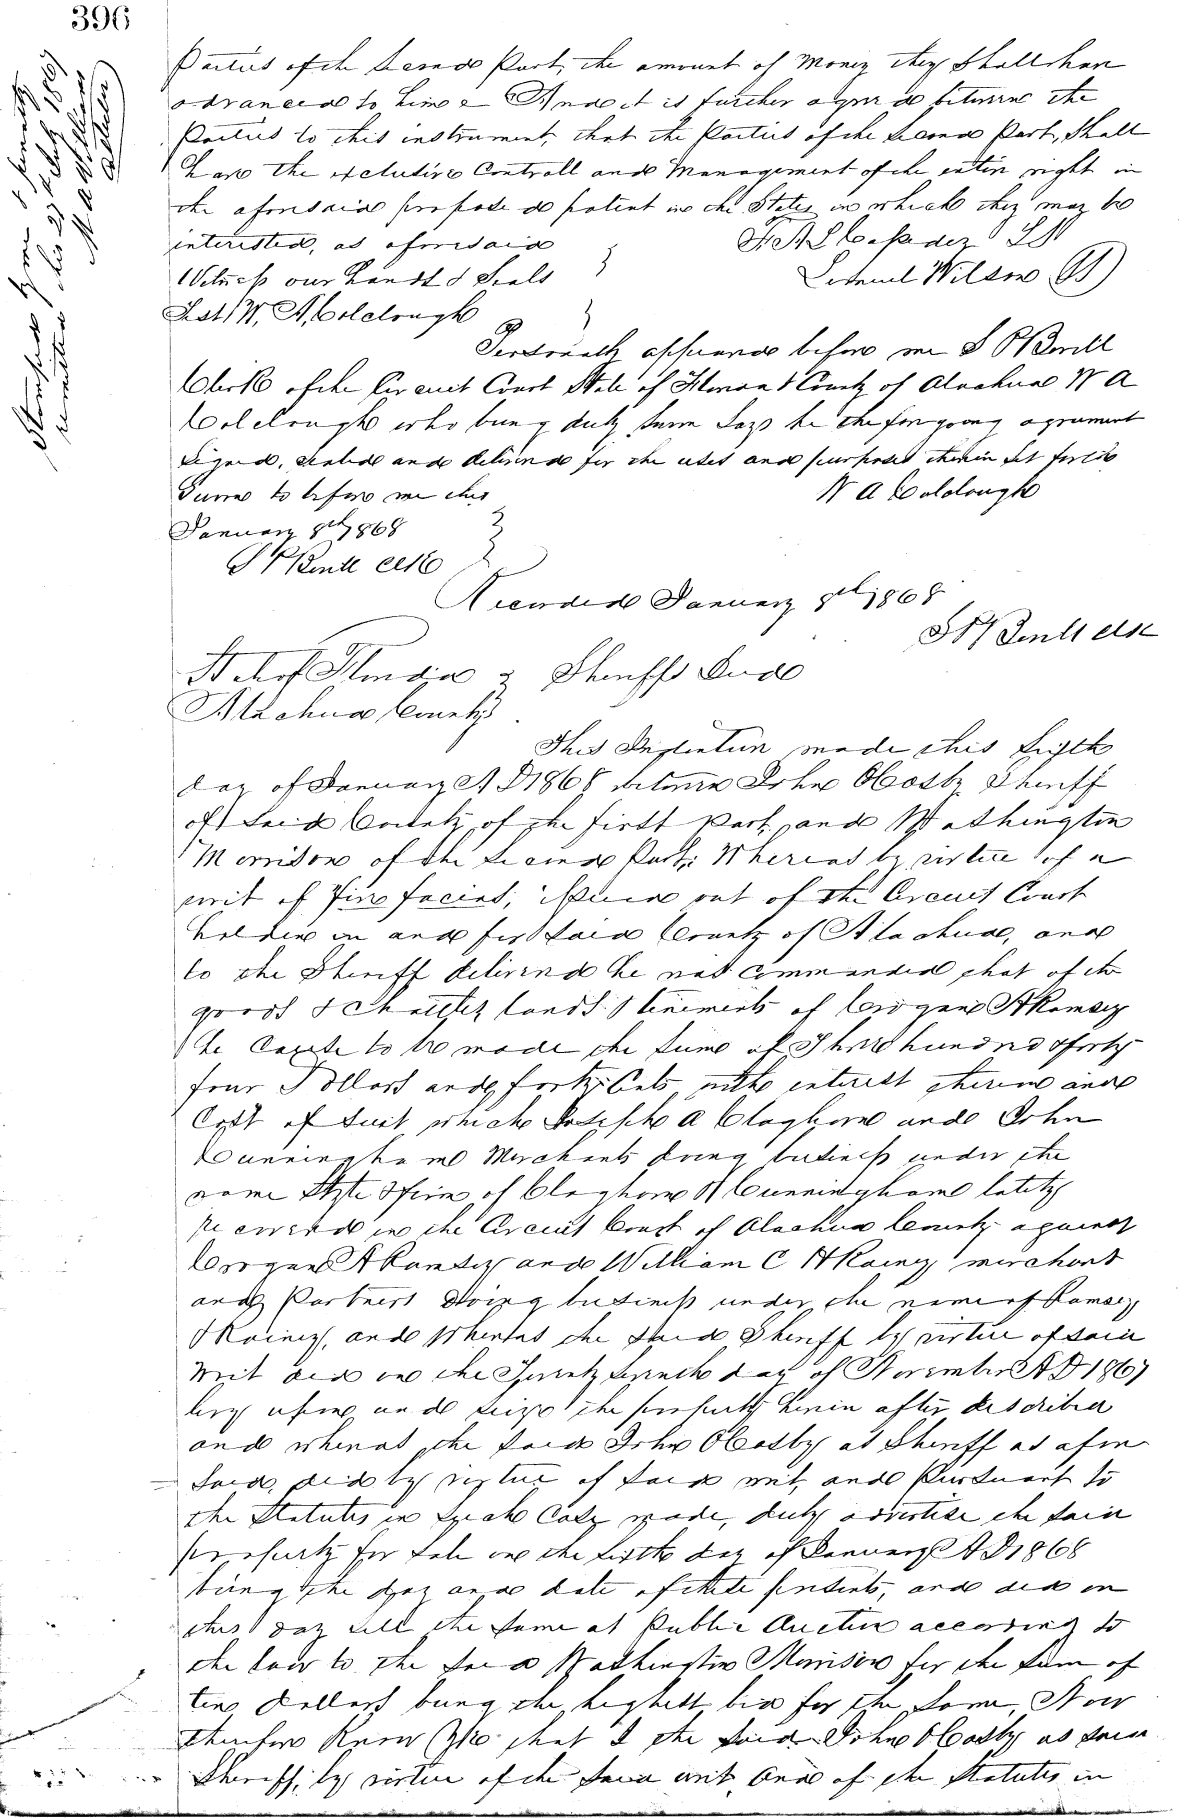 396
Parties of the Second Part, the amount of Money they Shall have
advanced to him & And it is further agreed between the
Parties to this instrument, that the Parties of the Second Part, Shall
have the exclusive Controll and Management of the entire right in
the aforesaid proposed patent in the States in which they may be
interested, as aforesaid
Witness our hands & Seals
Lemuel Wilson
Test W. A. Colclough
Personally appeared before me
Clerk of the Circuit Court State of Florida & County of Alachua W A
Colclough who being duly sworn Says he the foregoing agreement
Signed, sealed and delivered for the uses and purposes therein Set forth
Sworn to before me this
W A Colclough
January 8th 1868
Clk
Recorded January 8th 1868
Clk
State of Florida } Sheriffs Deed
Alachua County
This Indenture made this Sixth
day of January A D 1868 between John O Casby Sheriff
of Said County of the first Part, and Washington
Morrison of the Second Part; Whereas by virtue of a
writ of fire facias, issued out of the Circuit Court
holden in and for Said County of Alachua, and
to the Sheriff delivered he was commanded that of the
goods & Chattles lands & tenements of A Ramsey
he Cause to be made the Sum of Three hundred & forty
four Dollars and forty Cts with interest thereon and
Cost of Suit which Joseph A Claghorn and John
Cunningham Merchants doing business under the
name Style & firm of Claghorn & Cunningham lately
recovered in the Circuit Court of Alachua County against
A Ramsey and William C Rainey merchants
and Partners doing business under the name of Ramsey
& Rainey, and Whereas the Said Sheriff by virtue of said
writ did on the Twenty Seventh day of November A D 1867
levy upon and seize the property herein after described
and whereas the Said John O Casby as Sheriff as afore
Said, did by virtue of Said writ, and Pursuant to
the Statutes in Such Case made, duly advertise the said
property for Sale on the Sixth day of January A D 1868
being the day and date of these presents, and did on
this day sell the Same at Public Auction according to
the law to the Said Washington Morrison for the Sum of
ten Dollars being the highest bid for the Same, Now
therefore Know Ye that I the Said John O Casby as said
Sheriff, by virtue of the Said writ, and of the Statutes in